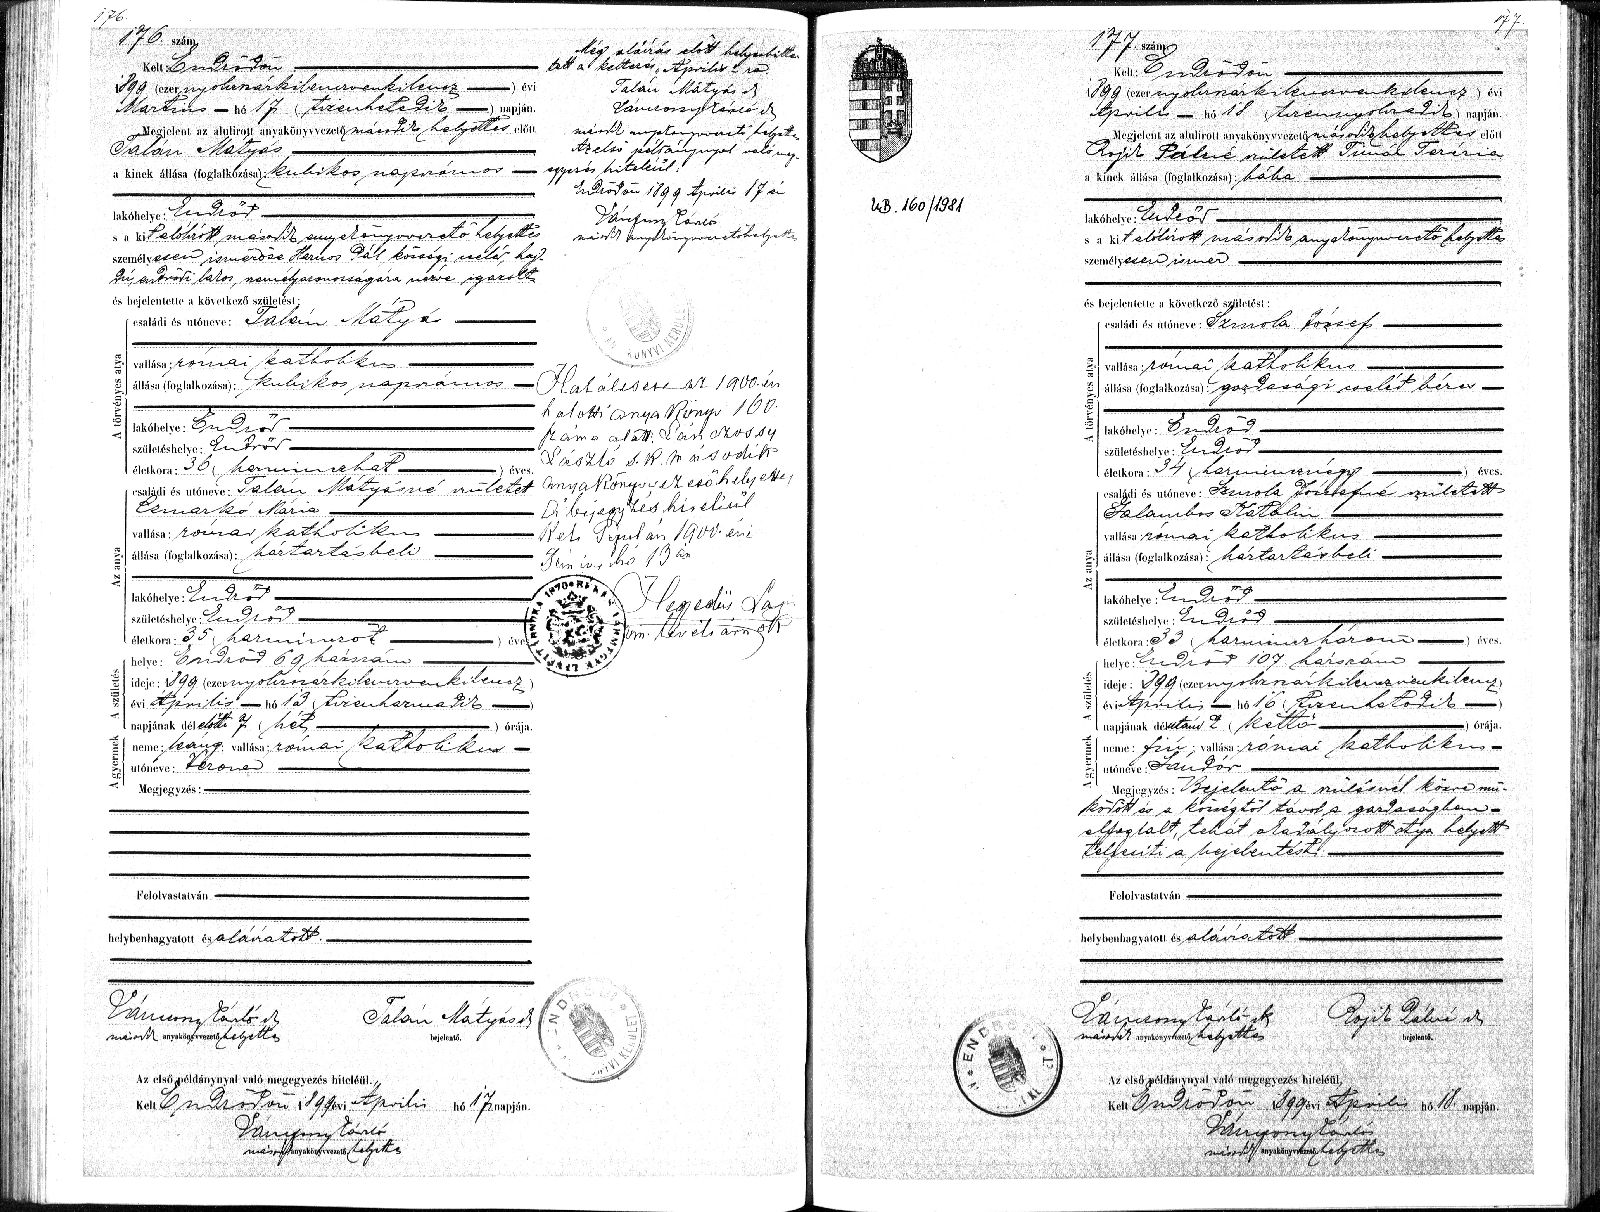 176.
176. szám
Kelt: Endrődön
1899 (ezernyolczszázkilenczvenkilencz) évi
Martius hó 17 (tizenhetedik) napján.
Megjelent az alulirott anyakönyvvezető második helyettes előtt
Talán Mátyás
a kinek állása (foglalkozása): kubikos napszámos
lakóhelye: Endrőd
s a kit alólirott második anyakönyvvezető helyettes
személyesen ismerőse Pál községi
endrődi lakos, személyazonosságára nézve igazolt
és bejelentette a következő születést:
A törvényes atya
családi és utóneve: Talán Mátyás
vallása: római katholikus
állása (foglalkozása): kubikos napszámos
lakóhelye: Endrőd
születéshelye: Endrőd
életkora: 36 (harminczhat) éves.
Az anya
családi és utóneve: Talán Mátyásné született
Csmarkó Mária
vallása: római katholikus
állása (foglalkozása): háztartásbeli
lakóhelye: Endrőd
születéshelye: Endrőd
életkora: 35 (harminczöt) éves
A születés
helye: Endrőd 69 házszám
ideje: 1899 (ezernyolczszázkilenczvenkilencz)
évi Április hó 13 (tizenharmadik)
napjának délelőtti 7 (hét) órája.
A gyermek
neme: leány; vallása: római katholikus
utóneve: Verona
Megjegyzés:
Felolvastatván
helybenhagyatott és aláiratott.
Talán Mátyás sk
második anyakönyvvezető helyettes
bejelentő.
Az első példánynyal való megegyezés hiteléül,
Kelt Endrődön 1899 évi Április hó 17. napján.
második anyakönyvvezető helyettes
Még aláirás előtt helyesbitte-
tett a keltezés "Április"-ra.
Talán Mátyás sk
második anyakönyvvezető helyettes
Az első példánynyal való meg-
egyezés hiteléül:
Endrődön 1899 Április 17 én
második anyakönyvvezető helyettes
Halálesete az 1900. évi
halotti anyakönyv 160.
száma alatt.
László s.k. második
anyakönyvvezető helyettes,
A bejegyzés hiteléül
Kelt Gyulán 1900. évi
Június hó 13 án
Hegedűs
vm. levéltárnok
177.
177. szám
Kelt: Endrődön
1899 (ezernyolczszázkilenczvenkilencz) évi
Április hó 18 (tizennyolczadik) napján.
Megjelent az alulirott anyakönyvvezető második helyettes előtt
Rojik Pálné született Timár Terézia
a kinek állása (foglalkozása): bába
lakóhelye: Endrőd
s a kit alólirott második anyakönyvvezető helyettes
személyesen ismer
és bejelentette a következő születést:
UB. 160/1981
A törvényes atya
családi és utóneve: Szmola József
vallása: római katholikus
állása (foglalkozása): gazdasági cseléd béres
lakóhelye: Endrőd
születéshelye: Endrőd
életkora: 34 (harmincznégy) éves.
Az anya
családi és utóneve: Szmola Józsefné született
Galambos Katalin
vallása: római katholikus
állása (foglalkozása): háztartásbeli
lakóhelye: Endrőd
születéshelye: Endrőd
életkora: 33 (harminczhárom) éves.
A születés
helye: Endrőd 107 házszám
ideje: 1899 (ezernyolczszázkilenczvenkilencz)
évi Április hó 16 (tizenhatodik)
napjának délutáni 2 (kettő) órája.
A gyermek
neme: fiú; vallása: római katholikus
utóneve: Sándor
Megjegyzés: Bejelentő a szülésnél közre mű-
ködött és a községtől távol a gazdaságban
elfoglalt, tehát akadályozott atya helyett
teljesiti a bejelentést.
Felolvastatván
helybenhagyatott és aláiratott
Rojik Pálné sk
második anyakönyvvezető helyettes
bejelentő.
Az első példánynyal való megegyezés hiteléül,
Kelt Endrődön 1899 évi Április hó 18. napján.
második anyakönyvvezető helyettes